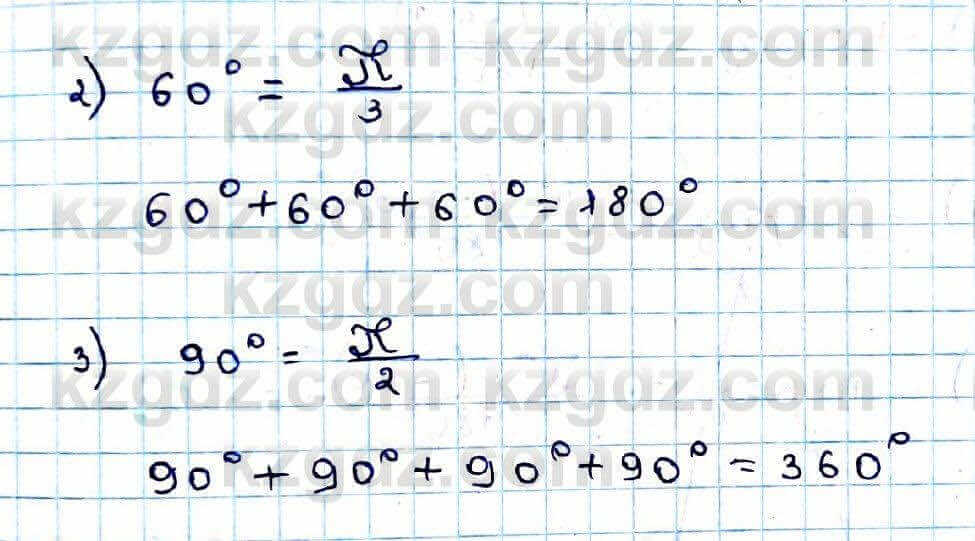 kzgdz.com kzgdz.com
2) 60° = π/3
kzgdz.com
60° + 60° + 60° = 180°
kzgdz.com kzgdz.com
kzgdz.com
3) 90° = π/2
kzgdz.com kzgdz.com
90° + 90° + 90° + 90° = 360°
kzgdz.com